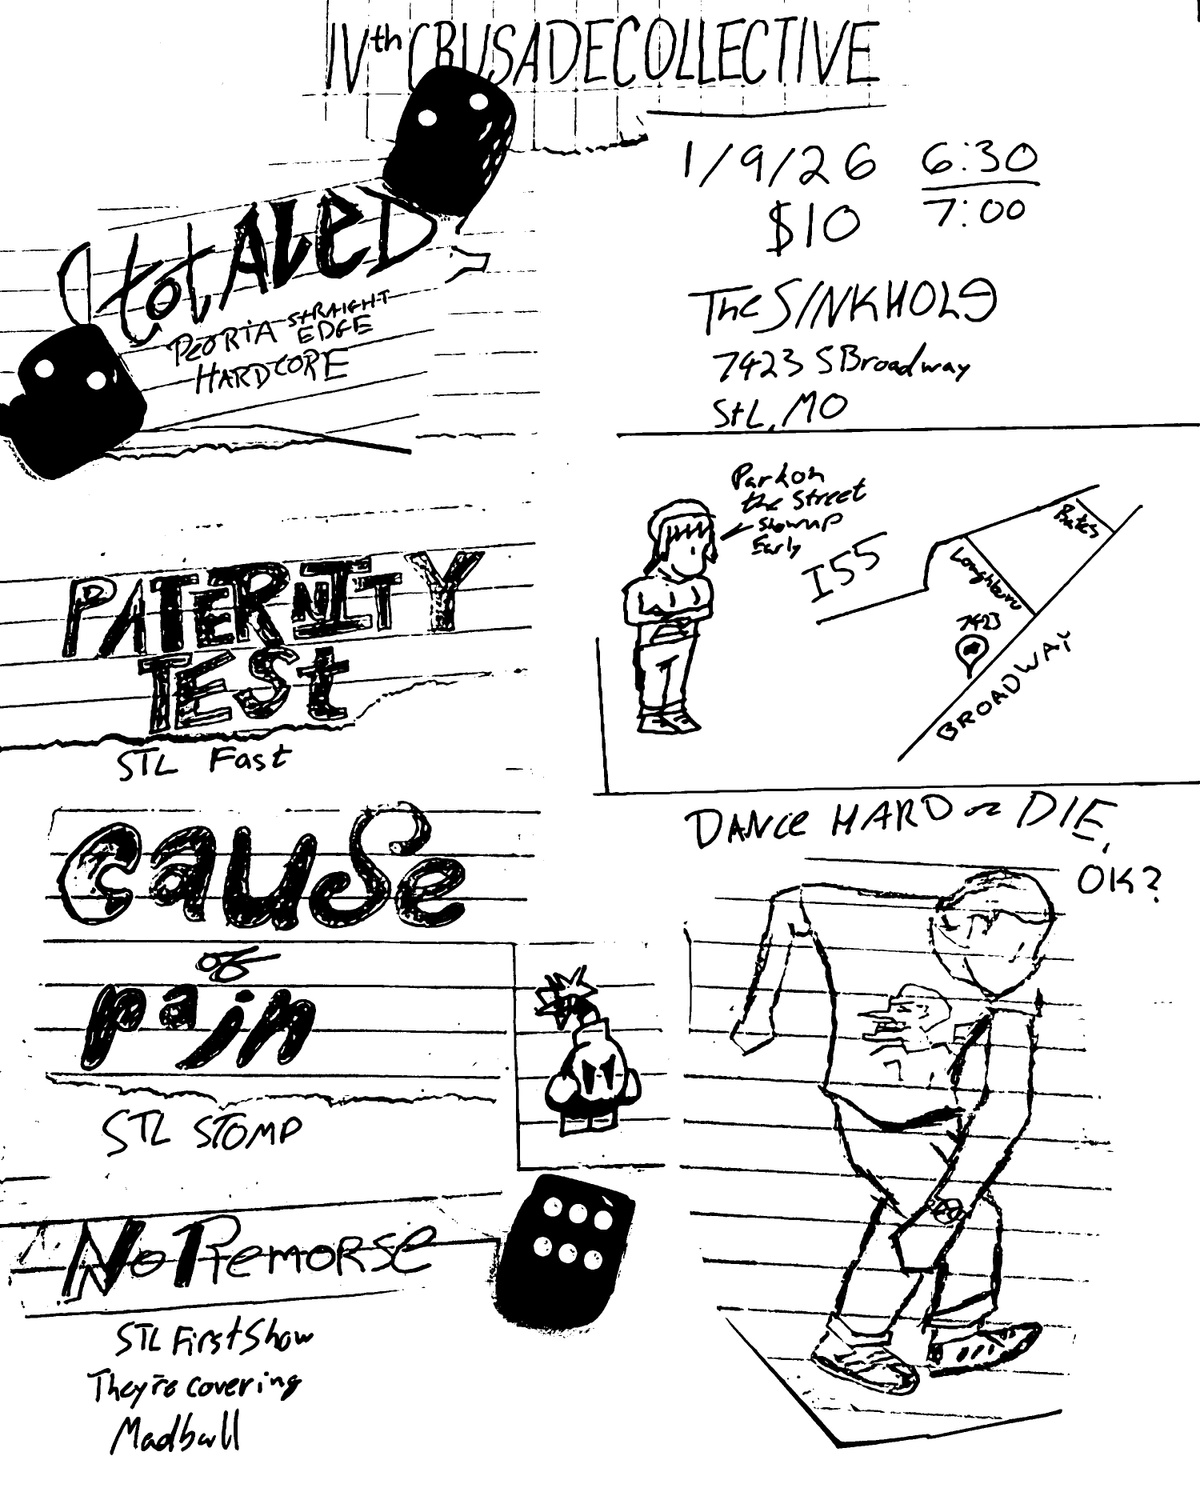 IVth CRUSADE COLLECTIVE
1/9/26 6:30
$10 7:00
The SINKHOLE
7423 S Broadway
StL, MO
totALeD
PEORIA STRAIGHT
EDGE
HARDCORE
Park on
the Street
Show up
Early
I55
Bates
Loughboro
7423
BROADWAY
PATERNITY
TESt
STL Fast
cause
of
pain
STL STOMP
No Remorse
STL First Show
They're covering
Madball
DANCE HARD or DIE,
OK?